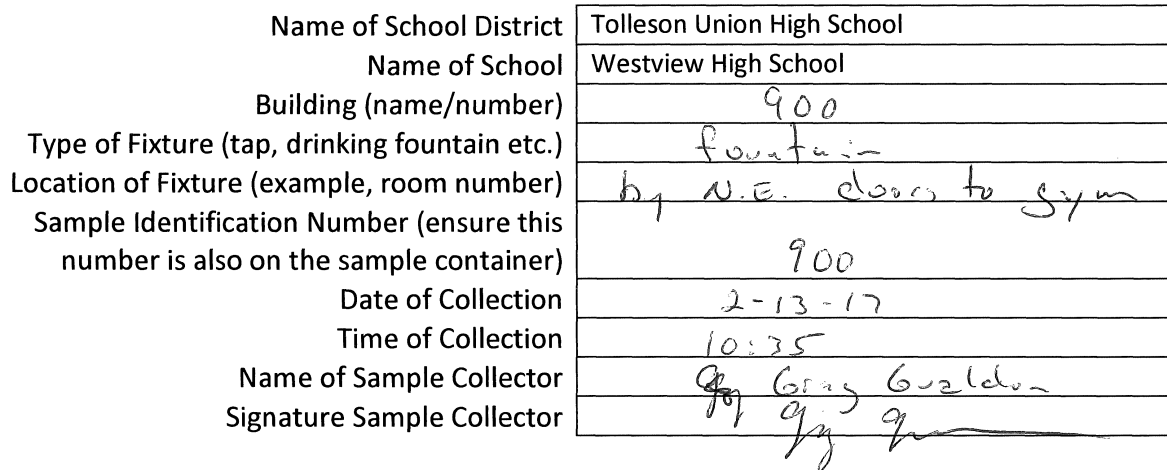 Name of School District Tolleson Union High School
Name of School Westview High School
Building (name/number) 900
Type of Fixture (tap, drinking fountain etc.) fountain
Location of Fixture (example, room number) by N.E. doors to gym
Sample Identification Number (ensure this
number is also on the sample container) 900
Date of Collection 2-13-17
Time of Collection 10:35
Name of Sample Collector Greg
Signature Sample Collector